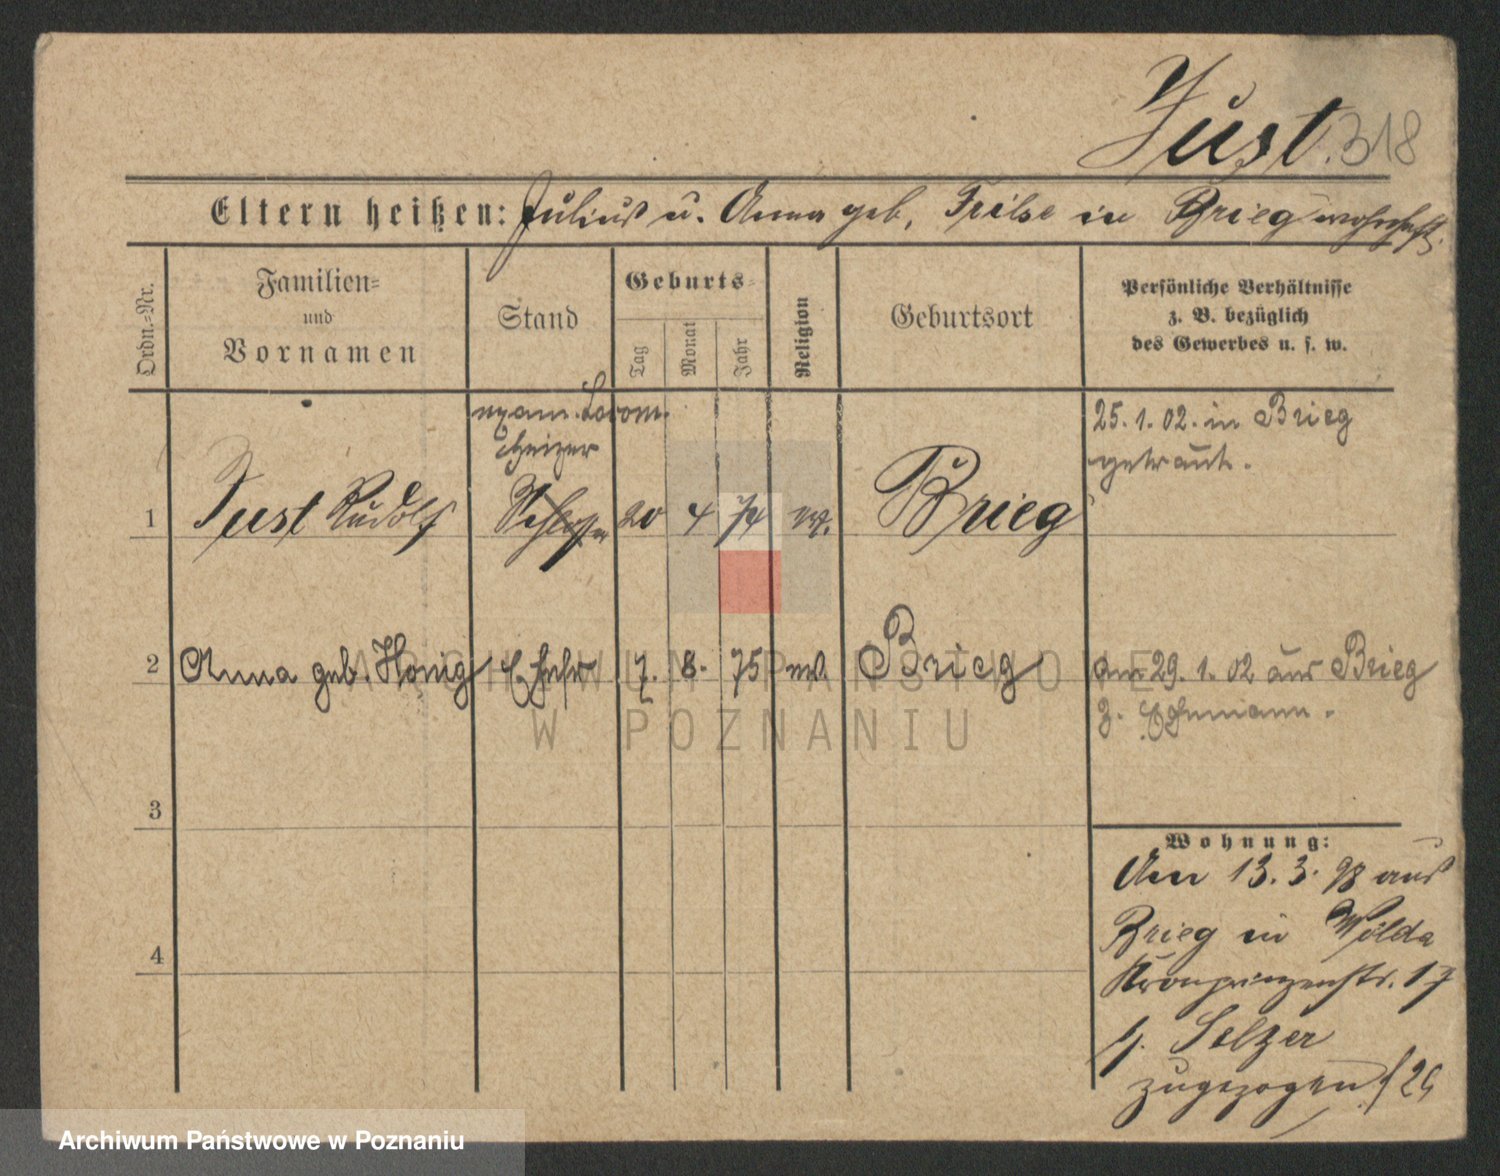 Just. 318
Eltern heißen: Julius u. Anna geb. Frilse in Brieg wohnhaft.
Ordn.-Nr.
Familien-
und
Vornamen
Stand
Geburts-
Tag
Monat
Jahr
Religion
Geburtsort
Persönliche Verhältnisse
z. B. bezüglich
des Gewerbes u. s. w.
exam. Locom.
heizer
1 Just Rudolf Schlosser 20 4 74 ev. Brieg
25. 1. 02. in Brieg
getraut.
2 Anna geb. Honig Ehefr 7. 8. 75 ev. Brieg
am 29. 1. 02 aus Brieg
z. Ehemann.
3
4
Wohnung:
Am 13. 3. 98 aus
Brieg in Wilda
Kronprinzenstr. 17
b. Selzer
zugezogen
ARCHIWUM PAŃSTWOWE
W POZNANIU
Archiwum Państwowe w Poznaniu